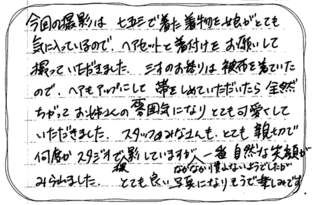 今回の撮影は 七五三で着た着物を娘がとても
気に入っているので、ヘアセットと着付けをお願いして
撮っていただきました。三才のお参りは 被布を着ていた
ので、ヘアもアップにして 帯をしめていただいたら 全然
ちがって お姉さんの 雰囲気になり とても可愛くして
いただきました。スタッフのみなさんも、とても 親切で
何度か スタジオで撮影していますが、一番 自然な笑顔が
なかなか慣れないようでしたが
みられました。とても良い 写真になりそうで楽しみです